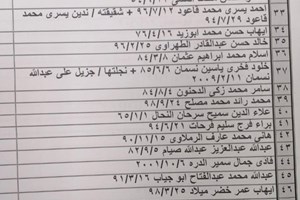 ٣٣ احمد يسري محمد قاعود ٩٦/٧/١٢ + شقيقته / ندين يسرى محمد
قاعود ٩٤/٧/٢٩
٣٤ ايهاب حسن محمد ابوزيد ٧٦/٤/١٦
٣٥ خالد حسن عبدالقادر الطهراوي ٩٦/٢/٢٥
٣٦ اسلام محمد ابراهيم عثمان ٨٤/٣/٨
٣٧ خلود فخري ياسين نسمان ٨٥/٦/٦ + نجلتها / جزيل على عبدالله
نسمان ٢٠٠٩/٢/٢١
٣٨ سامر محمد زكي الدحنون ٨٤/٨/٤
٣٩ محمد رائد محمد مصلح ٩٨/٩/٢٤
٤٠ علاء الدين سميح سرحان النحال ٦٥/١/١
٤١ براء فرج سليم فرحات ٩٤/٦/٢١
٤٢ هاني محمد عارف الرملاوي ٩٠/١١/١٥
٤٣ عبدالله عبدالعزيز عبدالله صيام ٨٢/٩/٥
٤٤ فادى جمال سمير الدره ٢٠٠١/١٠/٦
٤٥ عبدالله محمد عبدالفتاح ابو جياب ٩١/٣/١٦
٤٦ ايهاب عمر خضر ميلاد ٩٨/٣/٢٥